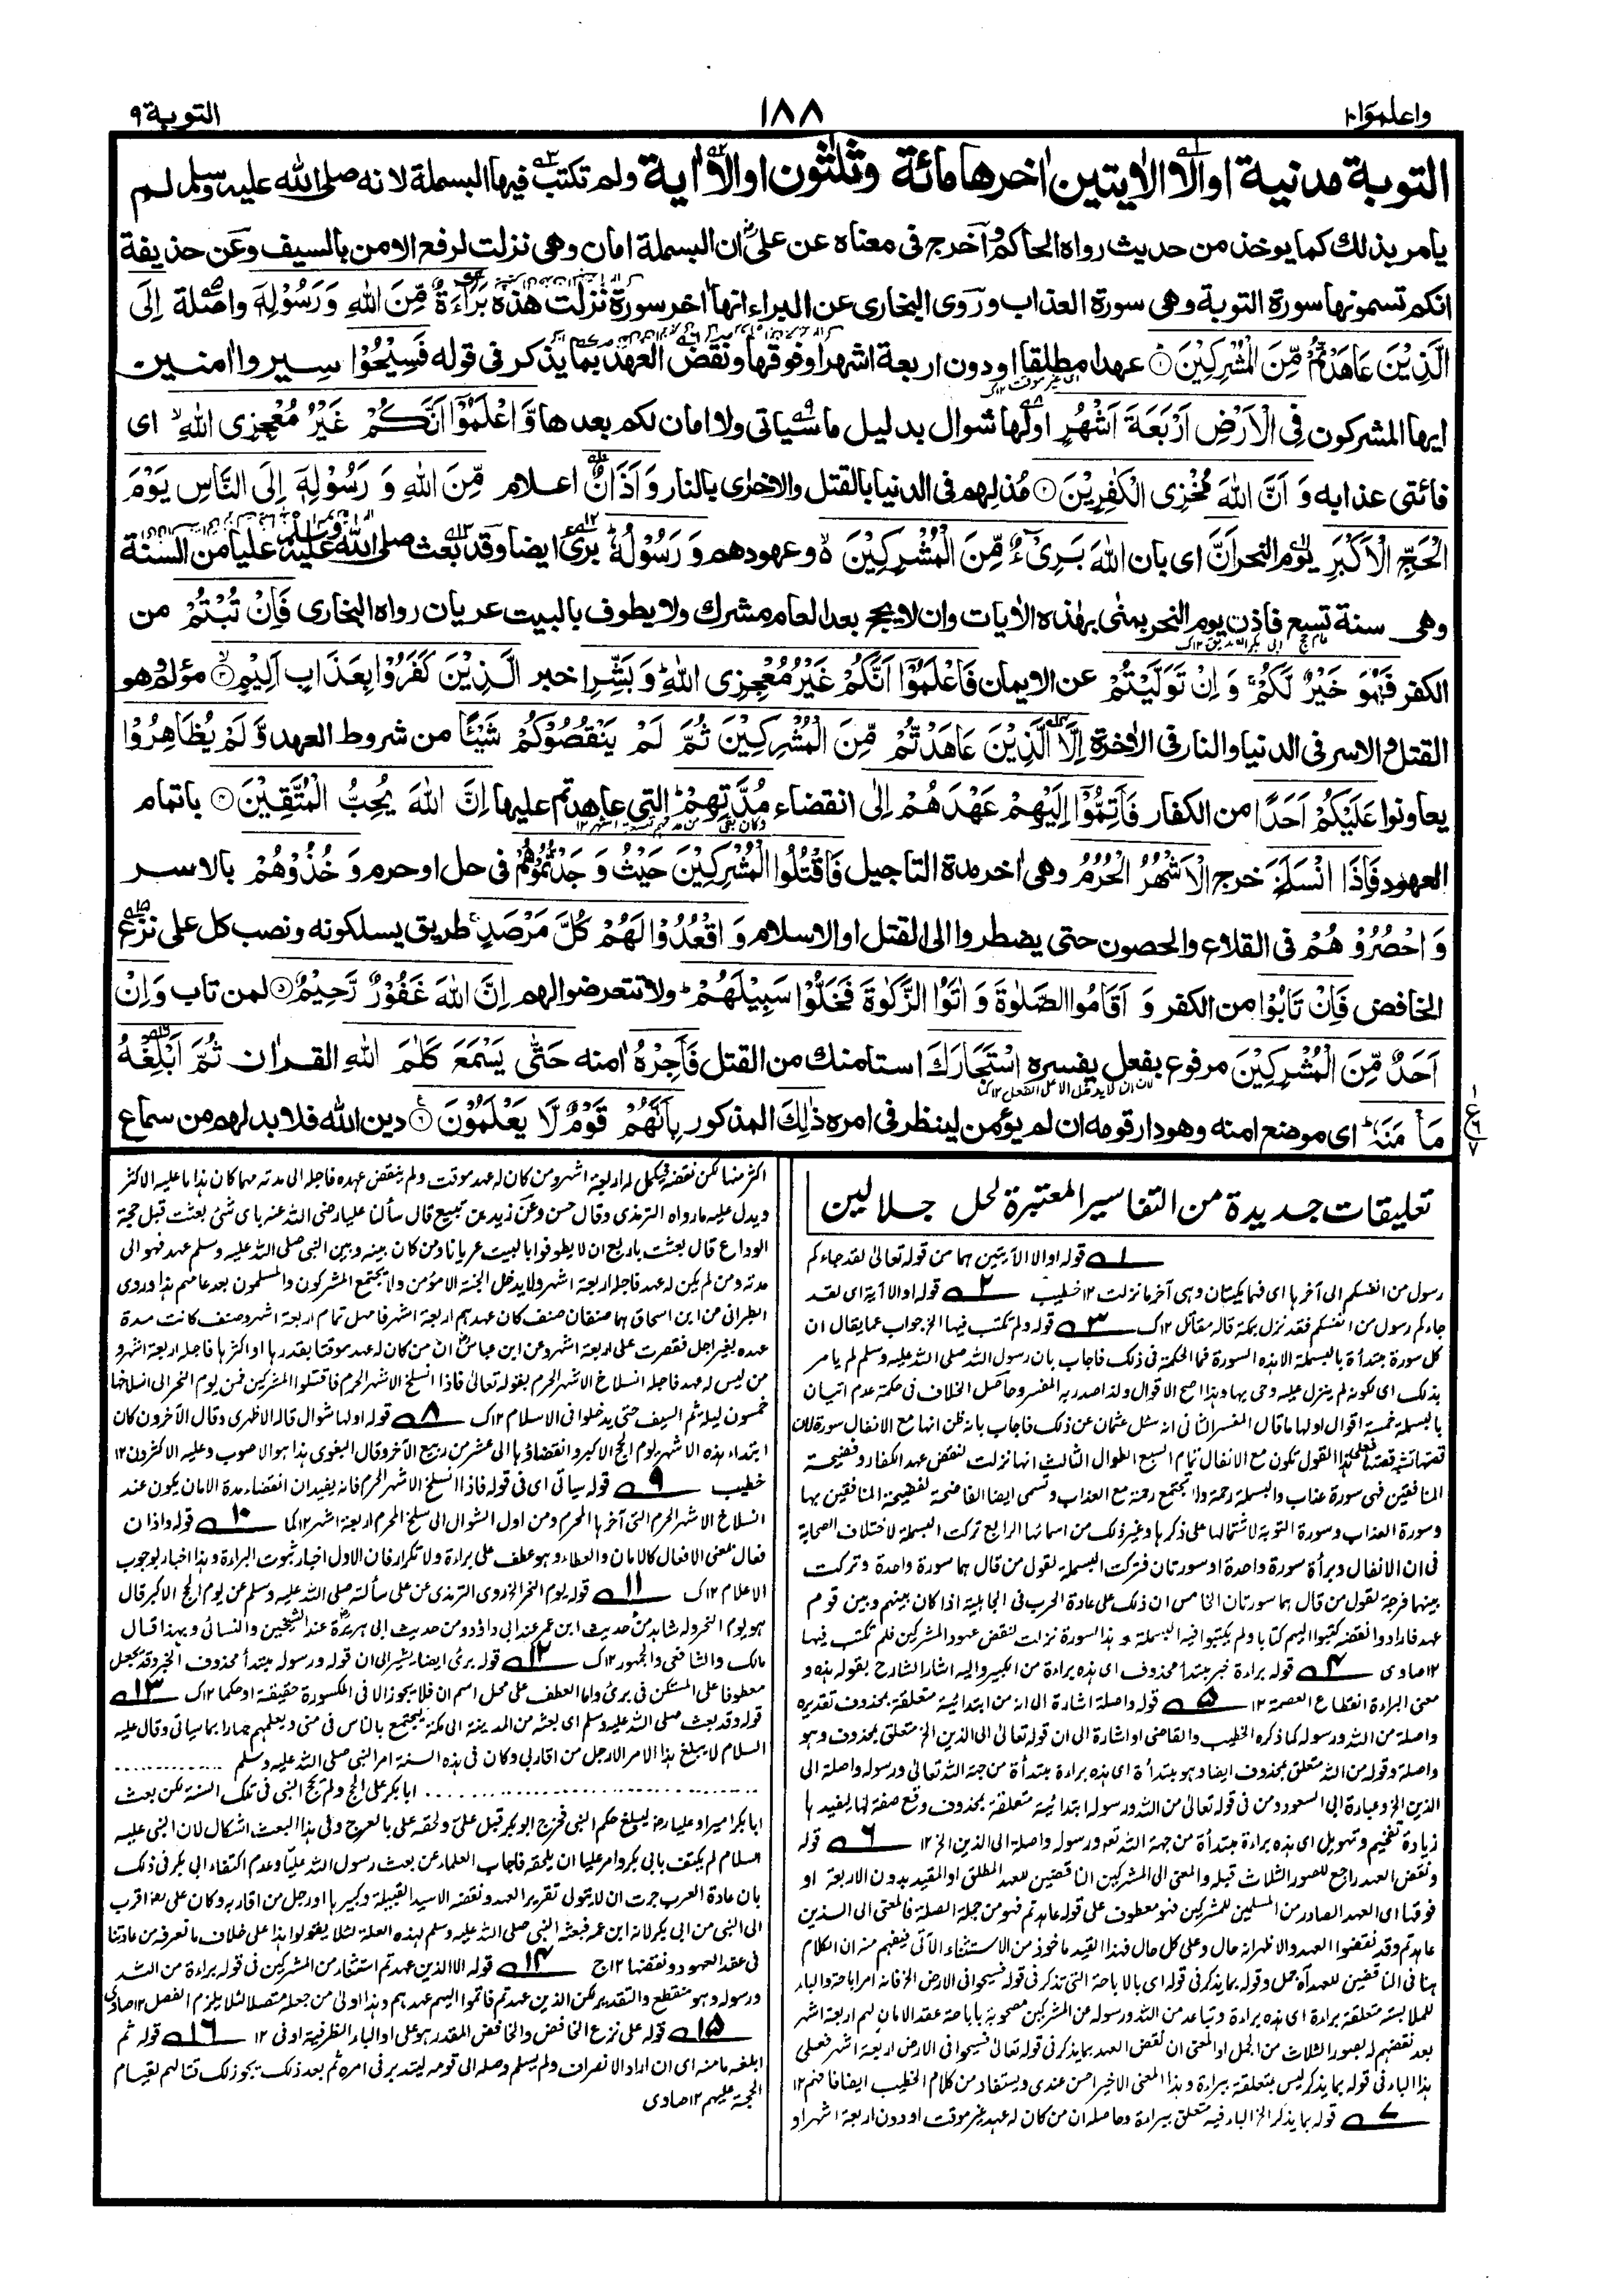 واعلموا۱۰
۱۸۸
التوبة۹
التوبة مدنية اوالا الاٰيتين اٰخرها مائة وثلٰثون اوالا اٰية ولم تكتب فيها البسملة لانه صلى الله عليه وسلم لم
يامر بذلك كما يوخذ من حديث رواه الحاكم واخرج فى معناه عن على ان البسملة امان وهى نزلت لرفع الامن بالسيف وعن حذيفة
انكم تسمونها سورة التوبة وهى سورة العذاب وروى البخارى عن البراء انها اٰخر سورة نزلت هذه بَرَاۤءَةٌ مِّنَ اللهِ وَرَسُوْلِهٖۤ واصلة اِلَى
الَّذِيْنَ عَاهَدْتُّمْ مِّنَ الْمُشْرِكِيْنَ ۱ عهدا مطلقا او دون اربعة اشهر او فوقها ونقض العهد بما يذكر فى قوله فَسِيْحُوْا سيروا اٰمنين
ايها المشركون فِى الْاَرْضِ اَرْبَعَةَ اَشْهُرٍ اولها شوال بدليل ما سياتى ولا امان لكم بعدها وَّاعْلَمُوْۤا اَنَّكُمْ غَيْرُ مُعْجِزِى اللهِ ۙ اى
فائتى عذابه وَ اَنَّ اللهَ مُخْزِى الْكٰفِرِيْنَ ۲ مُذلهم فى الدنيا بالقتل والاخرٰى بالنار وَ اَذَانٌ اعلام مِّنَ اللهِ وَ رَسُوْلِهٖۤ اِلَى النَّاسِ يَوْمَ
الْحَجِّ الْاَكْبَرِ يوم النحر اَنَّ اى بان اللهَ بَرِىْۤءٌ مِّنَ الْمُشْرِكِيْنَ ۙ وعهودهم وَ رَسُوْلُهٗ ؕ برئ ايضا وقد بعث صلى الله عليه وسلم عليا من السنة
وهى سنة تسع فاذن يوم النحر بمنى بهذه الاٰيات وان لا يحج بعد العام مشرك ولا يطوف بالبيت عريان رواه البخارى فَاِنْ تُبْتُمْ من
الكفر فَهُوَ خَيْرٌ لَّكُمْ ۚ وَ اِنْ تَوَلَّيْتُمْ عن الايمان فَاعْلَمُوْۤا اَنَّكُمْ غَيْرُ مُعْجِزِى اللهِ ؕ وَ بَشِّرِ اخبر الَّذِيْنَ كَفَرُوْا بِعَذَابٍ اَلِيْمٍ ۳ مؤلم وهو
القتل والاسر فى الدنيا والنار فى الاٰخرة اِلَّا الَّذِيْنَ عَاهَدْتُّمْ مِّنَ الْمُشْرِكِيْنَ ثُمَّ لَمْ يَنْقُصُوْكُمْ شَيْئًا من شروط العهد وَّ لَمْ يُظَاهِرُوْا
يعاونوا عَلَيْكُمْ اَحَدًا من الكفار فَاَتِمُّوْۤا اِلَيْهِمْ عَهْدَهُمْ اِلٰى انقضاء مُدَّتِهِمْ ؕ التى عاهدتم عليها اِنَّ اللهَ يُحِبُّ الْمُتَّقِيْنَ ۴ باتمام
العهود فَاِذَا انْسَلَخَ خرج الْاَشْهُرُ الْحُرُمُ وهى اٰخر مدة التاجيل فَاقْتُلُوا الْمُشْرِكِيْنَ حَيْثُ وَجَدْتُّمُوْهُمْ فى حل او حرم وَ خُذُوْهُمْ بالاسر
وَ احْصُرُوْهُمْ فى القلاع والحصون حتى يضطروا الى القتل او الاسلام وَ اقْعُدُوْا لَهُمْ كُلَّ مَرْصَدٍ ۚ طريق يسلكونه ونصب كل على نزع
الخافض فَاِنْ تَابُوْا من الكفر وَ اَقَامُوا الصَّلٰوةَ وَ اٰتَوُا الزَّكٰوةَ فَخَلُّوْا سَبِيْلَهُمْ ؕ ولا تتعرضوا لهم اِنَّ اللهَ غَفُوْرٌ رَّحِيْمٌ ۵ لمن تاب وَ اِنْ
اَحَدٌ مِّنَ الْمُشْرِكِيْنَ مرفوع بفعل يفسره اسْتَجَارَكَ استامنك من القتل فَاَجِرْهُ اٰمنه حَتّٰى يَسْمَعَ كَلٰمَ اللهِ القراٰن ثُمَّ اَبْلِغْهُ
مَاْمَنَهٗ ؕ اى موضع امنه وهو دار قومه ان لم يؤمن لينظر فى امره ذٰلِكَ المذكور بِاَنَّهُمْ قَوْمٌ لَّا يَعْلَمُوْنَ ۶ دين الله فلا بد لهم من سماع
تعليقات جديدة من التفاسير المعتبرة لحل جلالين
۱ قوله اوالا الآيتين هما من قوله تعالىٰ لقد جاءكم
رسول من انفسكم الى آخرها اى فهما مكيتان وهى آخر ما نزلت ۱۲ خطيب ۲ قوله اوالا آية اى لقد
جاءكم رسول من انفسكم فقد نزل بمكة قاله مقاتل ۱۲ك ۳ قوله ولم تكتب فيها الخ جواب عما يقال ان
كل سورة مبتدأة بالبسملة الا هذه السورة فما الحكمة فى ذلك فاجاب بان رسول الله صلى الله عليه وسلم لم يامر
بذلك اى لكونه لم ينزل عليه وحى بها وهذا اصح الاقوال ولذا صدر به المفسر وحاصل الخلاف فى حكمة عدم اتيان
بالبسملة خمسة اقوال اولها ما قال المفسر الثانى انه سئل عثمان عن ذلك فاجاب بانه ظن انها مع الانفال سورة لان
قصتها تشبه قصتها فعلى هذا القول تكون مع الانفال تمام السبع الطوال الثالث انها نزلت لنقض عهد الكفار وفضيحة
المنافقين فهى سورة عذاب والبسملة رحمة ولا تجتمع رحمة مع العذاب وتسمى ايضا الفاضحة لفضيحة المنافقين بها
وسورة العذاب وسورة التوبة لاشتمالها على ذكرها وغير ذلك من اسمائها الرابع تركت البسملة لاختلاف الصحابة
فى ان الانفال وبرأة سورة واحدة او سورتان فتركت البسملة لقول من قال هما سورة واحدة وتركت
بينهما فرجة لقول من قال هما سورتان الخامس ان ذلك على عادة الحرب فى الجاهلية اذا كان بينهم وبين قوم
عهد فارادوا نقضه كتبوا اليهم كتابا ولم يكتبوا فيه البسملة وهذا السورة نزلت لنقض عهود المشركين فلم تكتب فيها
۱۲ صاوى ۴ قوله براءة خبر مبتدأ محذوف اى هذه براءة من الكبير واليه اشار الشارح بقوله هذه و
معنى البراءة انقطاع العصمة ۱۲ ۵ قوله واصلة اشارة الى انه من ابتدائية متعلقة بمحذوف تقديره
واصلة من الله ورسوله كما ذكره الخطيب والقاضى او اشارة الى ان قوله تعالىٰ الى الذين الخ متعلق بمحذوف وهو
واصلة وقوله من الله متعلق بمحذوف ايضا وهو مبتدأة اى هذه براءة مبتدأة من جهة الله تعالىٰ ورسوله واصلة الى
الذين الخ وعبارة ابى السعود ومن فى قوله تعالىٰ من الله ورسوله ابتدائية متعلقة بمحذوف وقع صفة لها ليفيدها
زيادة تفخيم وتهويل اى هذه براءة مبتدأة من جهة الله تعـ ورسوله واصلة الى الذين الخ ۱۲ ۶ قوله
ونقض العهد راجع للصور الثلاث قبله والمعنى الى المشركين الناقضين للعهد المطلق او المقيد بدون الاربعة او
فوقها اى العهد الصادر من المسلمين للمشركين فهو معطوف على قوله عاهدتم فهو من جملة الصلة فالمعنى الى الذين
عاهدتم وقد نقضوا العهد والاظهر انه حال وعلى كل حال فهذا القيد ماخوذ من الاستثناء الآتى فيفهم منه ان الكلام
هنا فى الناقضين للعهد اه جمل وقوله بما يذكر فى قوله اى بالاباحة التى تذكر فى قوله فسيحوا فى الارض الخ فانه امر اباحة والباء
للملابسة متعلقة ببراءة اى هذه براءة وتباعد من الله ورسوله عن المشركين مصحوبة باباحة عقد الامان لهم اربعة اشهر
بعد نقضهم له بصور الثلاث من الجمل او المعنى ان نقض العهد بما يذكر فى قوله تعالىٰ فسيحوا فى الارض اربعة اشهر فعلى
هذا الباء فى قوله بما يذكر ليس بمتعلقة ببراءة وهذا المعنى الاخير احسن عندى ويستفاد من كلام الخطيب ايضا فافهم ۱۲
۷ قوله بما يذكر الخ الباء فيه متعلق ببراءة وحاصله ان من كان له عهد غير موقت او دون اربعة اشهر او
اكثر منها لكن نقضه فيكمل له اربعة اشهر ومن كان له عهد موقت ولم ينقض عهده فاجله الى مدته مهما كان هذا ما عليه الاكثر
ويدل عليه ما رواه الترمذى وقال حسن وعن زيد بن تبيع قال سألنا عليا رضى الله عنه باى شئ بعثت قبل حجة
الوداع قال بعثت باربع ان لا يطوفوا بالبيت عريانا ومن كان بينه وبين النبى صلى الله عليه وسلم عهد فهو الى
مدته ومن لم يكن له عهد فاجله اربعة اشهر ولا يدخل الجنة الا مؤمن ولا يجتمع المشركون والمسلمون بعد عامهم هذا وروى
الطبرانى من ابن اسحاق هما صنفان صنف كان عهدهم اربعة اشهر فامهل تمام اربعة اشهر وصنف كانت مدة
عهده بغير اجل فقصرت على اربعة اشهر وعن ابن عباس ان من كان له عهد موقتا بقدرها او اكثرها فاجله اربعة اشهر و
من ليس له عهد فاجله انسلاخ الاشهر الحرم بقوله تعالىٰ فاذا انسلخ الاشهر الحرم فاقتلوا المشركين فمن يوم النحر الى انسلاخها
خمسون ليلة ثم السيف حتى يدخلوا فى الاسلام ۱۲ك ۸ قوله اولها شوال قاله الازهرى وقال الآخرون كان
ابتداء هذه الاشهر يوم الحج الاكبر وانقضاؤها الى عشر من ربيع الآخر وقال البغوى هذا هو الاصوب وعليه الاكثرون ۱۲
خطيب ۹ قوله سياتى اى فى قوله فاذا انسلخ الاشهر الحرم فانه يفيد ان انقضاء مدة الامان يكون عند
انسلاخ الاشهر الحرم التى آخرها المحرم ومن اول الشوال الى سلخ المحرم اربعة اشهر ۱۲ كما ۱۰ قوله واذان
فعال بمعنى الافعال كالامان والعطاء وهو عطف على براءة ولا تكرار فان الاول اخبار بثبوت البراءة وهذا اخبار بوجوب
الاعلام ۱۲ك ۱۱ قوله يوم النحر الخ روى الترمذى عن على سألته صلى الله عليه وسلم عن يوم الحج الاكبر قال
هو يوم النحر وله شاهد من حديث ابن عمر عند ابى داؤد ومن حديث ابى هريرة عند الشيخين والنسائى وبهذا قال
مالك والشافعى والجمهور ۱۲ك ۱۲ قوله برئ ايضا يشير الى ان قوله ورسوله مبتدأ محذوف الخبر وقد يجعل
معطوفا على المستكن فى برئ واما العطف على محل اسم ان فلا يجوز الا فى المكسورة حقيقة او حكما ۱۲ك ۱۳
قوله وقد بعث صلى الله عليه وسلم اى بعثه من المدينة الى مكة ليجتمع بالناس فى منى ويعلمهم جهارا بما سياتى وقال عليه
السلام لا يبلغ هذا الامر الا رجل من اقاربى وكان فى هذه السنة امر النبى صلى الله عليه وسلم
ابا بكر على الحج ولم يحج النبى فى تلك السنة لكن بعث
ابا بكر اميرا وعليا رضـ ليبلغ حكم النبى فخرج ابو بكر قبل على ولحقه على بالعرج وفى هذا البعث اشكال لان النبى عليه
السلام لم يكتف بابى بكر وامر عليا ان يلحقه فاجاب العلماء عن بعث رسول الله عليا وعدم اكتفاء ابى بكر فى ذلك
بان عادة العرب جرت ان لا يتولى تقرير العهد ونقضه الا سيد القبيلة وكبيرها او رجل من اقاربه وكان على اقرب
الى النبى من ابى بكر لانه ابن عمه فبعثه النبى صلى الله عليه وسلم لهذه العلة لئلا يقولوا هذا على خلاف ما نعرفه من عادتنا
فى عقد العهود ونقضها ۱۲ج ۱۴ قوله الا الذين عهدتم استثناء من المشركين فى قوله براءة من الله
ورسوله وهو منقطع والتقدير لكن الذين عهدتم فاتموا اليهم عهدهم وهذا اولى من جعله متصلا لئلا يلزم الفصل ۱۲ صاوى
۱۵ قوله على نزع الخافض والخافض المقدر هو على او الباء الظرفية او فى ۱۲ ۱۶ قوله ثم
ابلغه مامنه اى ان اراد الانصراف ولم يسلم وصله الى قومه ليتدبر فى امره ثم بعد ذلك يجوز لك قتالهم لقيام
الحجة عليهم ۱۲ صاوى